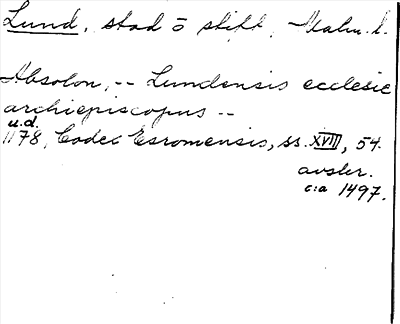 Lund, stad o stift, Malm. l.
Absolon, -- Lundensis ecclesie
archiepiscopus --
u.d.
1178, Codex Esromensis, ss. XVIII, 54.
avskr.
c:a 1497.